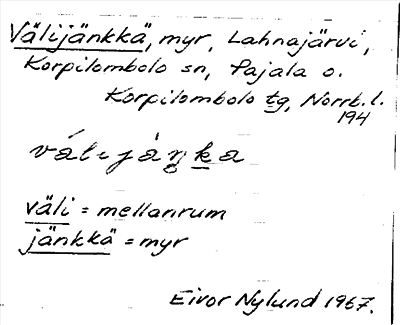 Välijänkkä, myr, Lahnajärvi,
Korpilombolo sn, Pajala o.
Korpilombolo tg, Norrb. l.
194
välijäŋka
väli = mellanrum
jänkkä = myr
Eivor Nylund 1967.